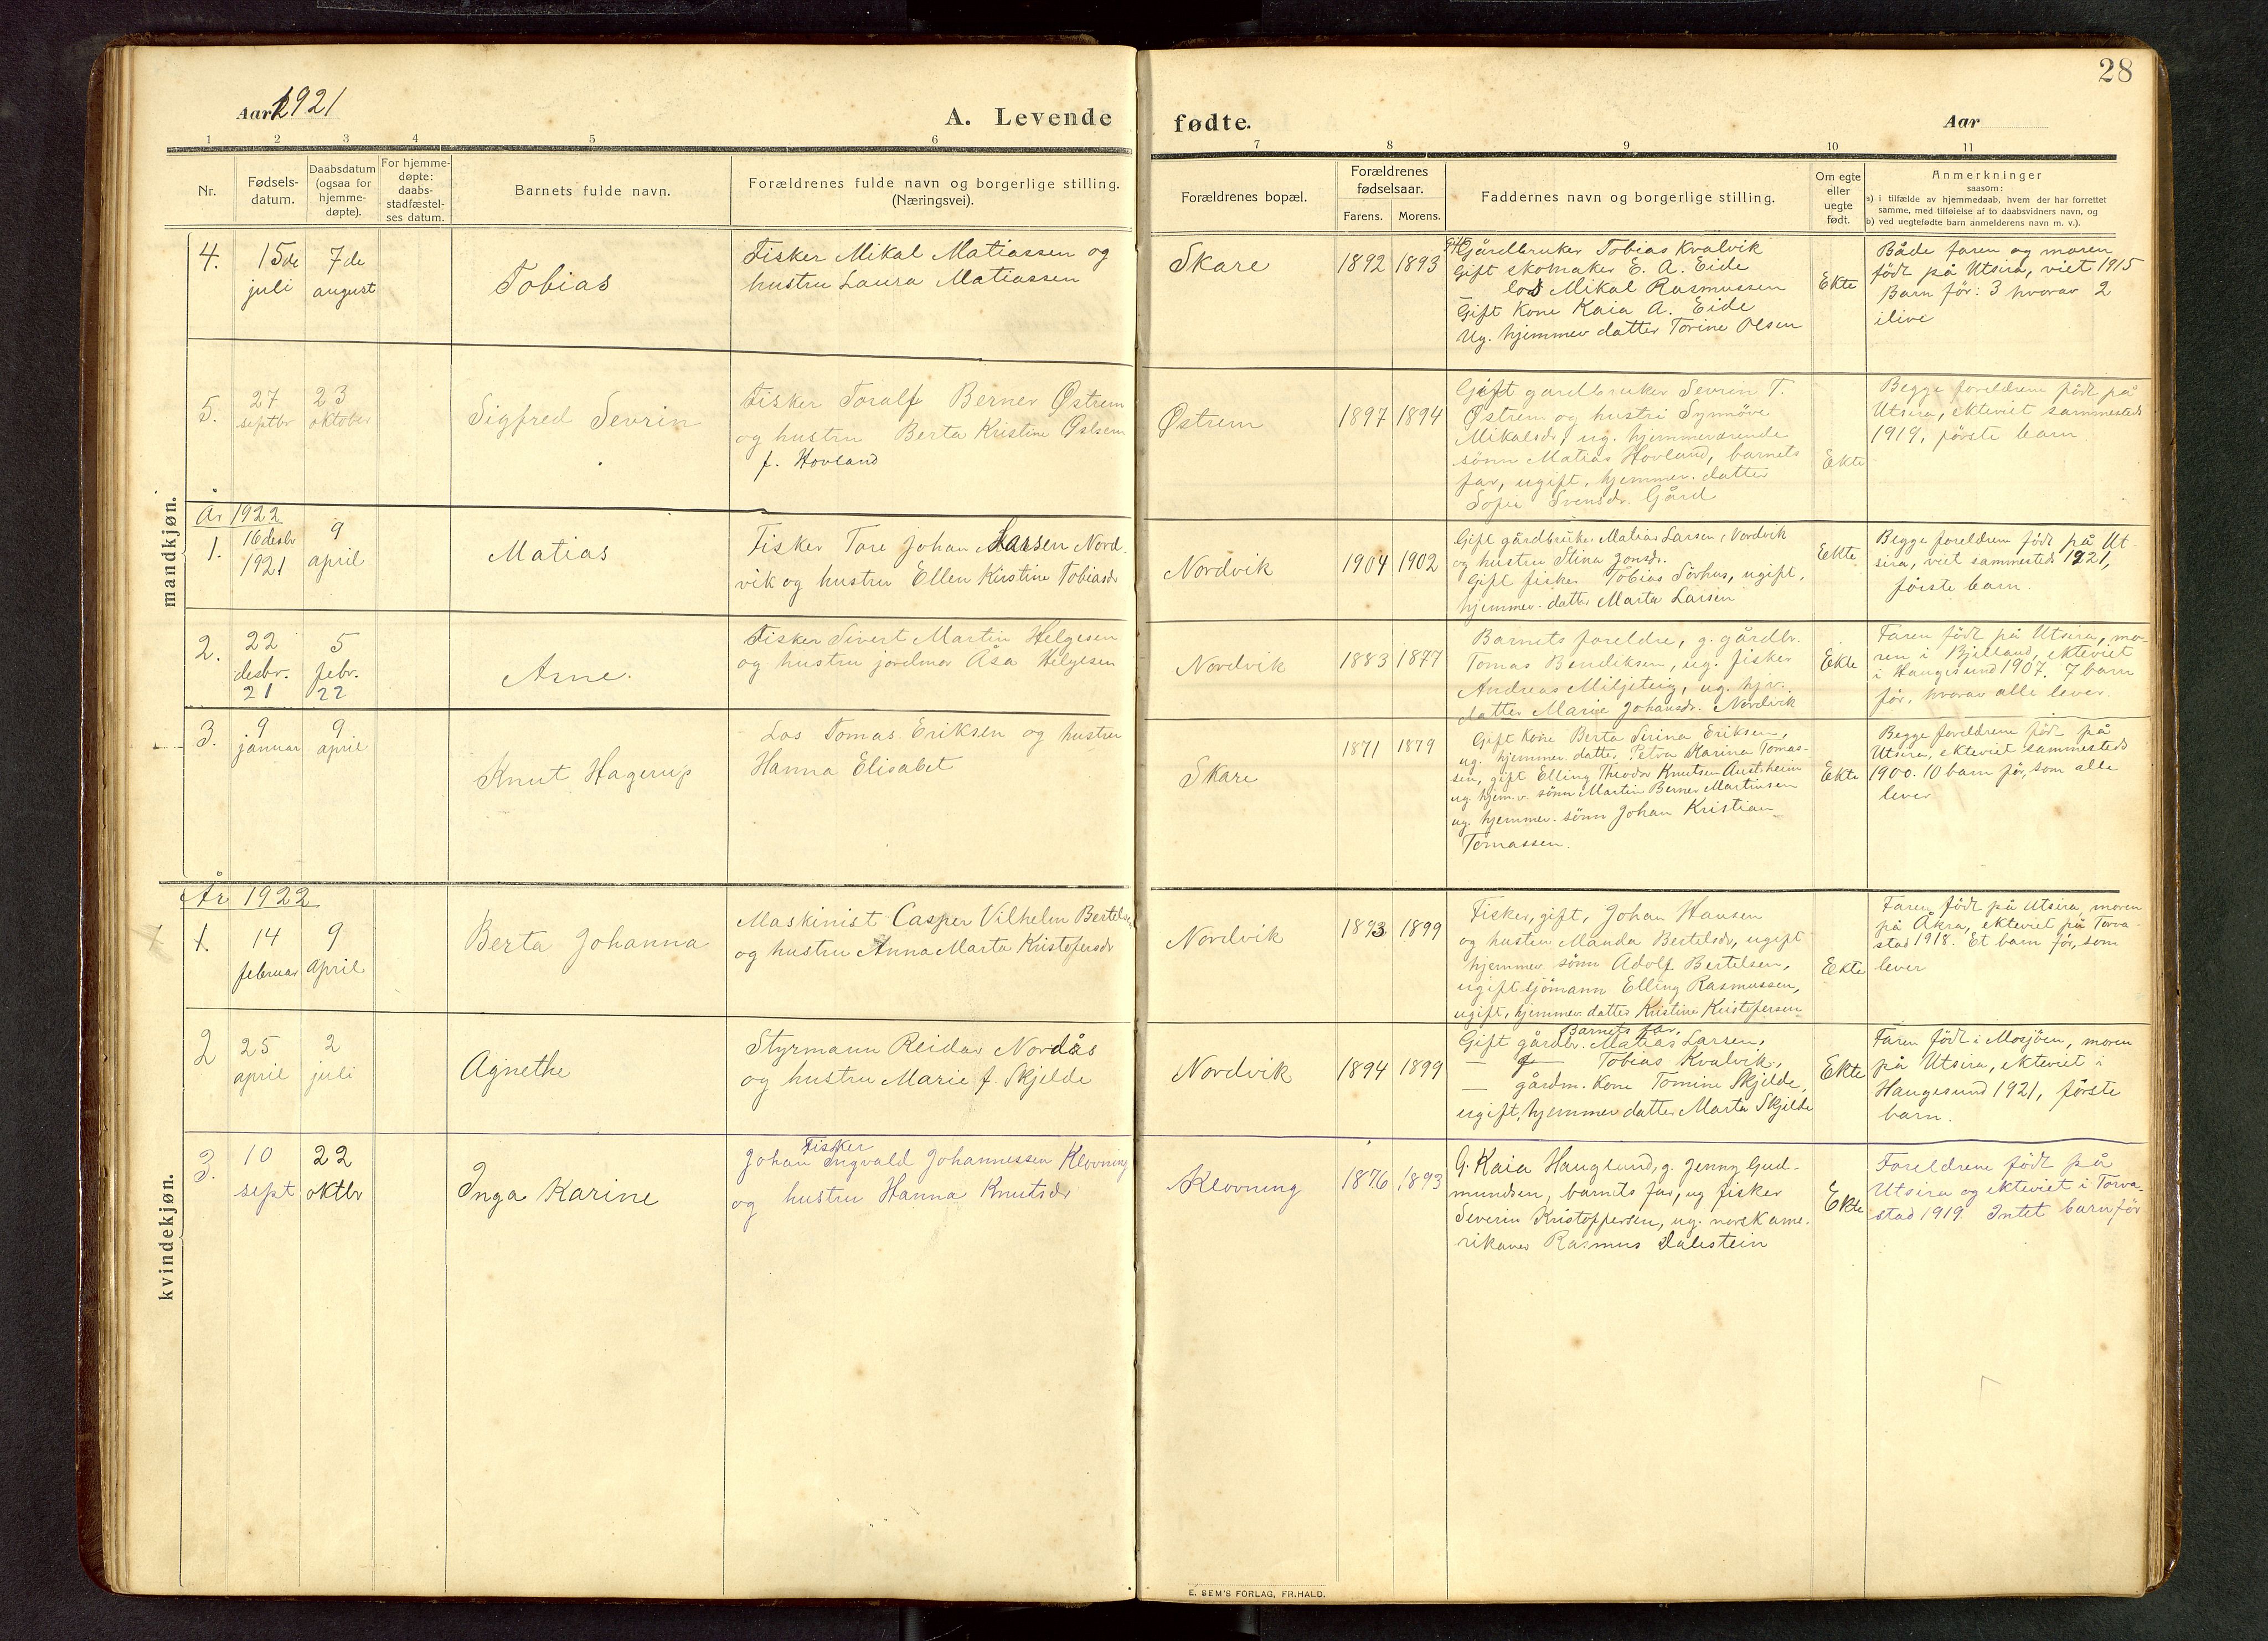 28
Aar 1921
A. Levende fødte.
Aar
1 2 3 4 5 6 7 8 9 10 11
Nr.
Fødsels-
datum.
Daabsdatum
(ogsaa for
hjemme-
døpte).
For hjemme-
døpte:
daabs-
stadfæstel-
ses datum.
Barnets fulde navn.
Forældrenes fulde navn og borgerlige stilling.
(Næringsvei).
Forældrenes bopæl.
Forældrenes
fødselsaar.
Farens. Morens.
Faddernes navn og borgerlige stilling.
Om egte
eller
uegte
født.
Anmerkninger
saasom:
a) i tilfælde av hjemmedaab, hvem der har forrettet
samme, med tilføielse af to daabsvidners navn, og
b) ved uegtefødte barn anmelderens navn m. v.).
mandkjøn.
4.
15de
juli
7de
august
Tobias
Fisker Mikal Matiassen og
hustru Laura Matiassen
Skare
1892 1893
Gift Gårdbruker Tobias Kvalvik
Gift skomaker E. A. Eide
los Mikal Rasmussen
Gift Kone Kaia A. Eide
Ug. hjemmev datter Torine Olsen
Ekte
Både faren og moren
födt på Utsira, viet 1915
Barn för: 3 hvorav 2
ilive
5.
27
septbr
23
oktober
Sigfred Sevrin
Fisker Toralf Berner Østrem
og hustru Berta Kristine Østrem
f. Hovland
Østrem
1897 1894
Gift gardbruker Sevrin T.
Østrem og hustru Synnöve
Mikalsdr, ug. hjemmeværende
sönn Matias Hovland, barnets
far, ugift, hjemmev. datter
Sofie Svensdr. Gård
Ekte
Begge foreldrene födt på
Utsira, ekteviet sammesteds
1919, förste barn.
År 1922
1.
16 desbr
1921
9
april
Matias
Fisker Tore Johan Larsen Nord-
vik og hustru Ellen Kirstine Tobiasdr
Nordvik
1904 1902
Gift gårdbruker Matias Larsen, Nordvik
og hustru Stina Jonsdr.
Gift fisker Tobias Sörhus, ugift,
hjemmev. datter Marta Larsen
Ekte
Begge foreldrene födt på Ut-
sira, viet sammesteds 1921,
förste barn.
2.
22
desbr.
21
5
febr.
22
Arne.
Fisker Sivert Martin Helgesen
og hustru jordmor Åsa Helgesen
Nordvik
1883 1877
Barnets foreldre, g. gårdbr.
Tomas Bendiksen, ug. fisker
Andreas Miljeteig, ug. hjv.
datter Marie Johansdr. Nordvik
Ekte
Faren födt på Utsira, mo-
ren i Bjelland, ekteviet
i Haugesund 1907. 7 barn
för, hvorav alle lever.
3.
9
januar
9
april
Knut Hagerup
Los Tomas Eriksen og hustru
Hanna Elisabet
Skare
1871 1879
Gift Kone Berta Serina Eriksen,
ug. hjemmev. datter Petra Karina Tomas-
sen, gift Elling Theodor Knutsen Austrheim
ug. hjem.v. sönn Martin Berner Martinsen
ug. hjemmev. sönn Johan Kristian
Tomassen.
Ekte
Begge foreldrene föd på
Utsira, ekteviet sammesteds
1900. 10 barn för, som alle
lever
År 1922
kvindekjøn.
1.
14
februar
9
april
Berta Johanna
Maskinist Casper Vilhelm Bertelsen
og hustru Anna Marta Kristofersdr
Nordvik
1893 1899
Fisker, gift, Johan Hansen
og hustru Manda Bertelsdr, ugift
hjemmev sönn Adolf Bertelsen,
ugift sjömann Elling Rasmussen,
ugift, hjemmev. datter Kristine Kristofersen
Ekte
Faren födt på Utsira, moren
på Åkra, ekteviet på Torva-
stad 1918. Et barn för, som
lever
2
25
april
2
juli
Agnethe
Styrmann Reidar Nordås
og hustru Marie f. Skjelde
Nordvik
1894 1899
Barnets far.
Gift gårdbr. Matias Larsen,
— Tobias Kvalvik,
— gårdm. Kone Tomine Skjelde,
ugift, hjemmev datter Marta Skjelde
Ekte
Faren födt i Mosjöen, moren
på Utsira, ekteviet i
Haugesund 1921, förste
barn.
3.
10
sept
22
oktbr
Inga Karine
Fisker
Johan Ingvald Johannessen Klovning
og hustru Hanna Knutsdr
Klovning
1876 1893
G. Kaia Hauglund, g. Jenny Gud-
mundsen, barnets far, ug fisker
Severin Kristoffersen, ug. norskame-
rikaner Rasmus Dalestein
Ekte
Foreldrene födt på
Utsira og ekteviet i Torva-
stad 1919. Intet barn för
E. SEM'S FORLAG, FR.HALD.